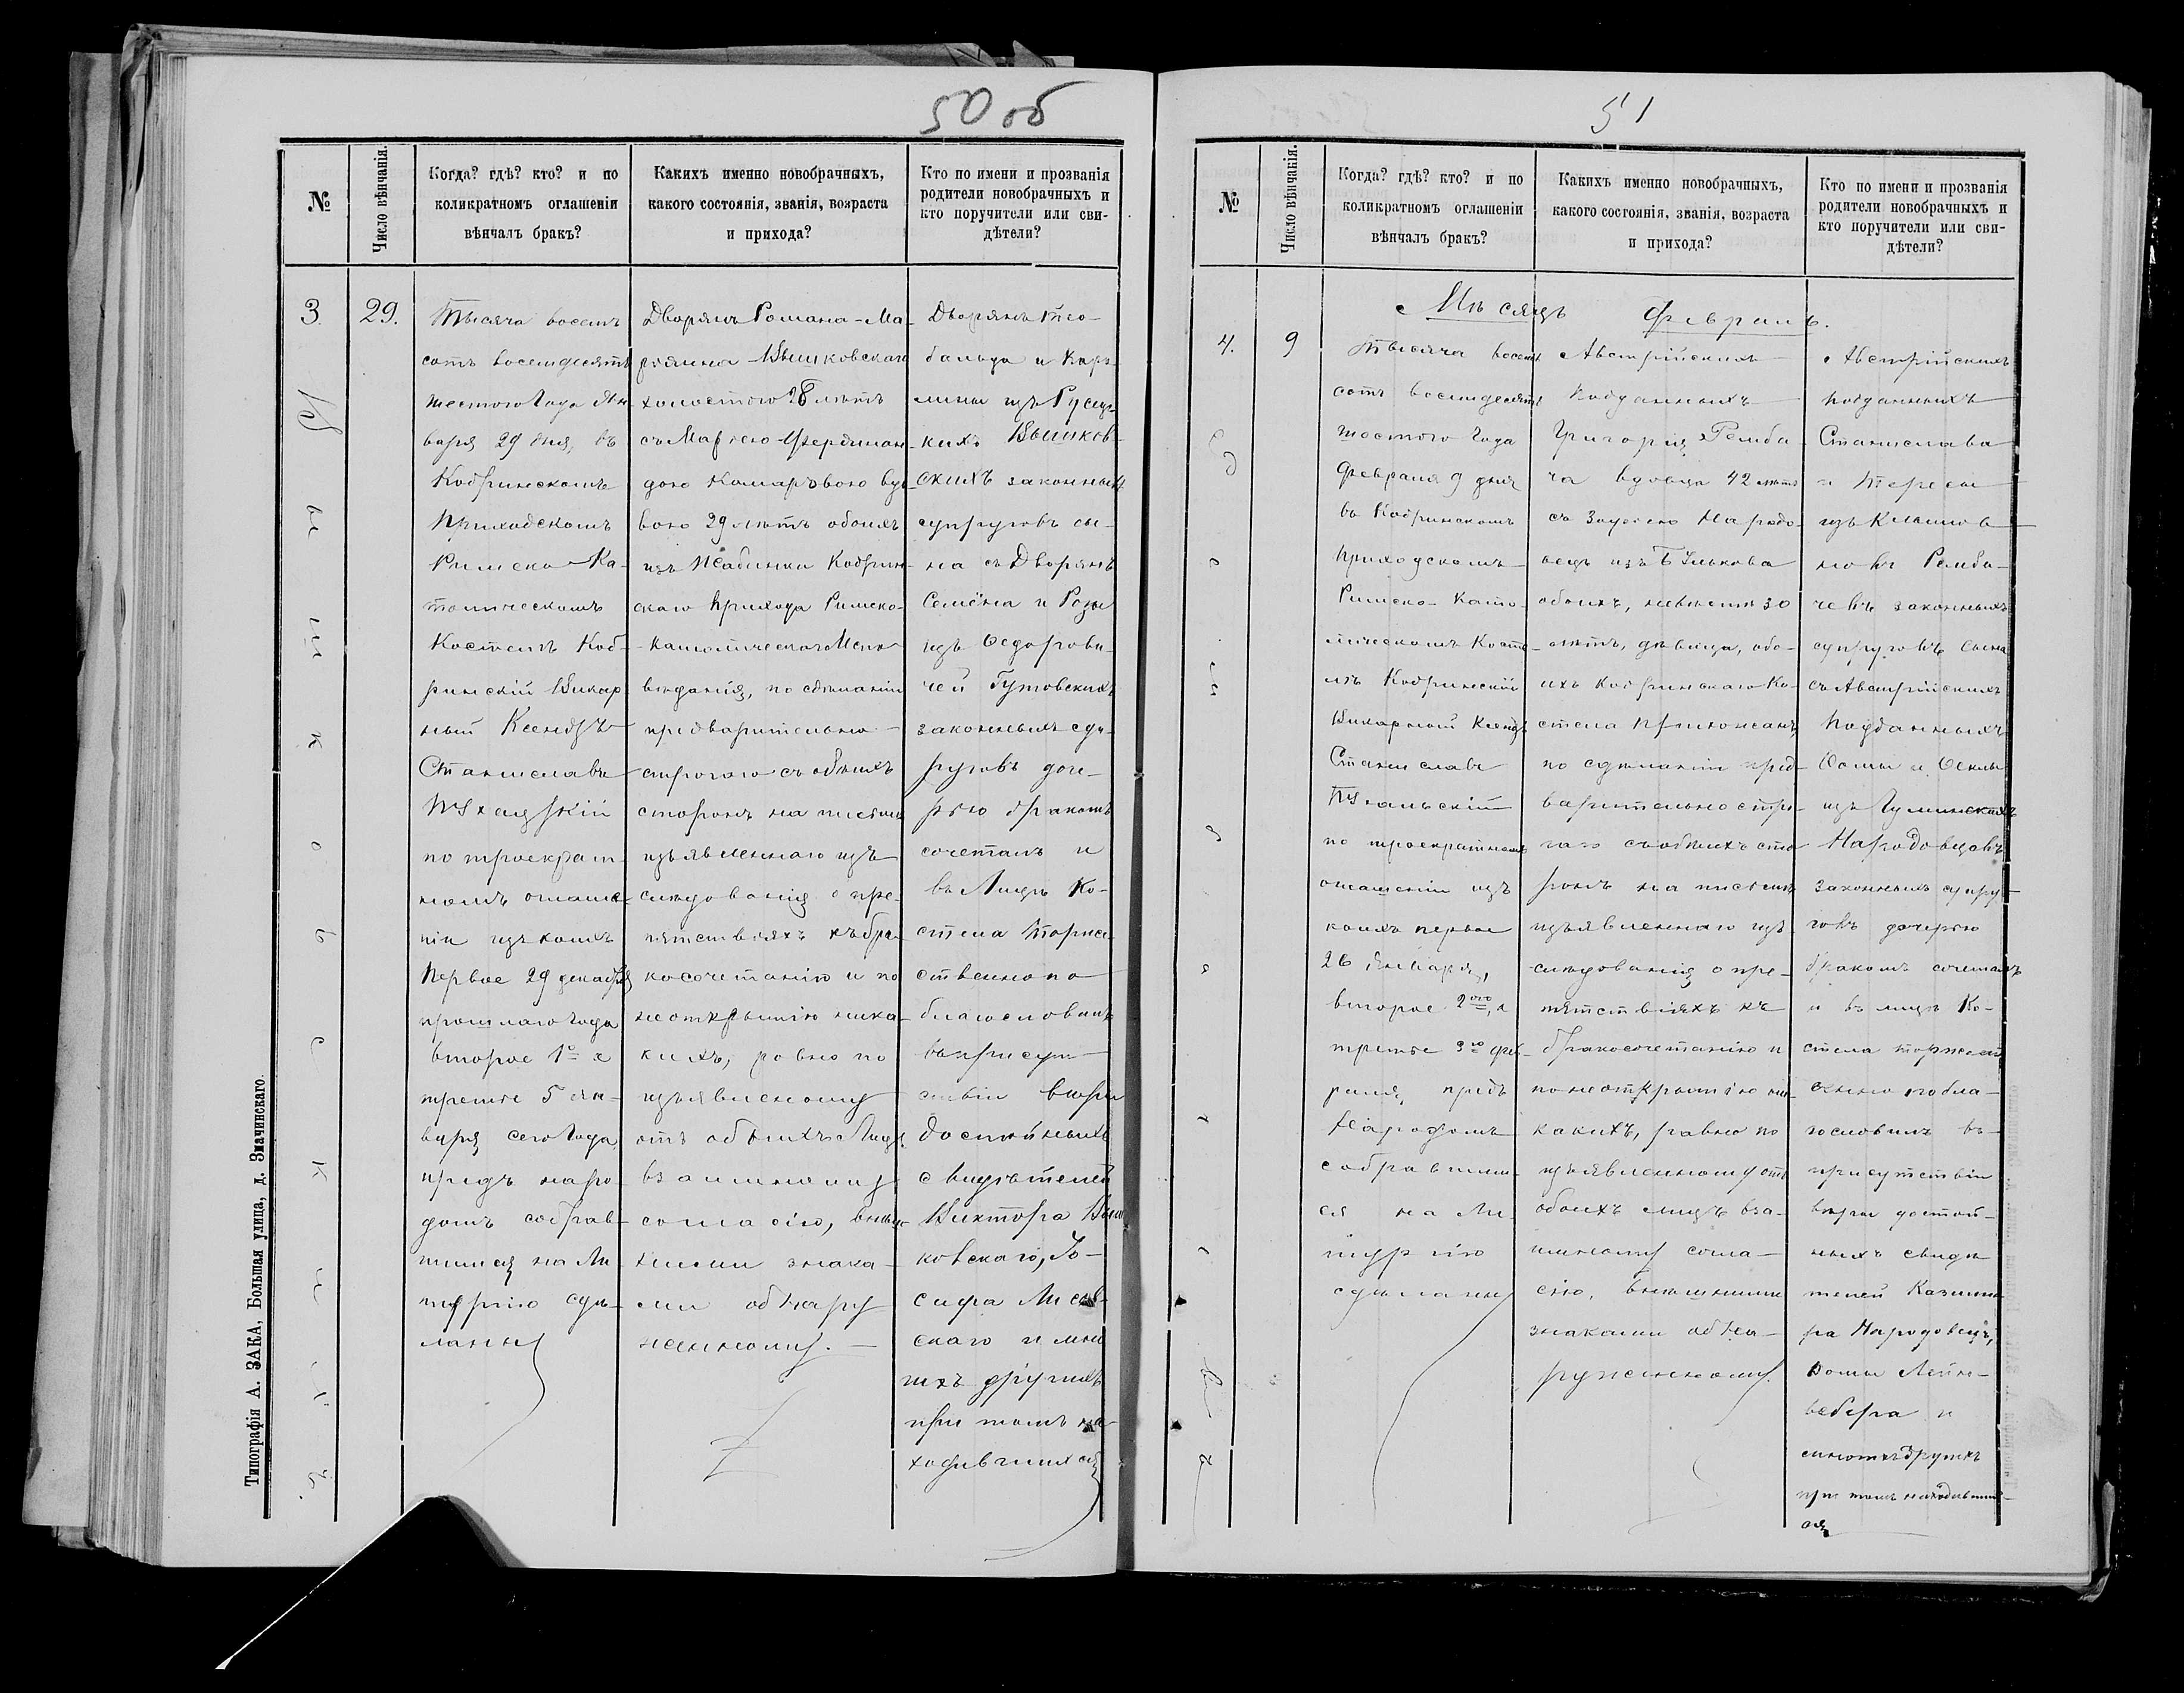 50 об
№
Число вѣнчанія.
Когда? гдѣ? кто? и по
коликратномъ оглашеніи
вѣнчалъ бракъ?
Какихъ именно новобрачныхъ,
какого состоянія, званія, возраста
и прихода?
Кто по имени и прозванія
родители новобрачныхъ и
кто поручители или сви-
дѣтели?
3.
Вышковскій.
29.
Тысяча восемь
сотъ восемдесятъ
шестого Года Ян-
варя 29 дня, въ
Кобринскомъ
Приходскомъ
Римско-Ка-
толическомъ
Костелѣ Коб-
ринскій Викар
ный Ксендзъ
Станиславъ
по троекрат-
номъ оглаше-
ніи изъ коихъ
Первое 29 декабря
прошлаго Года
второе 1º а
третье 5 ян-
варя сего Года,
предъ наро-
домъ собрав-
шимся на Ли-
тургію сдѣ-
ланны
Дворянъ Романа-Ма-
ріянна Вышковскаго
холостого 28 лѣтъ
съ Маріею-Фердинан-
дою Комаръвою вдо-
вою 29 лѣтъ обоихъ
изъ Жабинки Кобрин-
скаго прихода Римско-
-Католическаго Испо-
вѣданія, по сдѣланіи
предварительно
строгаго съ обѣихъ
сторонъ на письмѣ
изъявленнаго изъ
слѣдованія о пре-
пятствіяхъ къ бра-
косочетанію и по
неоткрытію ника-
кихъ, равно по
изъявленому
отъ обѣихъ Лицъ
взаимному
согласію, внѣш-
ними знака-
ми обнару
женному.
Дворянъ Тео-
бальда и Кар-
лины изъ Русец-
кихъ Вышков-
скихъ законныхъ
супруговъ сы-
на съ Дворянъ
Семёна и Розы
изъ Ѳедорови-
чей Гутовскихъ
законныхъ суп-
руговъ доче-
рью бракомъ
сочеталъ и
въ Лицѣ Ко-
стела Торже-
ственно по
благословилъ
въ присут-
ствіи вѣры
достойныхъ
свидѣтелей
Виктора Выш-
ковскаго, Іо-
сифа
скаго и мно
гихъ другихъ
при томъ на-
ходившихся
Типографія А. ЗАКА, Большая улица, д. Значинскаго.
51
№
Число вѣнчанія.
Когда? гдѣ? кто? и по
коликратномъ оглашеніи
вѣнчалъ бракъ?
Какихъ именно новобрачныхъ,
какого состоянія, званія, возраста
и прихода?
Кто по имени и прозванія
родители новобрачныхъ и
кто поручители или сви-
дѣтели?
Мѣсяцъ Февраль.
4.
9
Тысяча восемь
сотъ восемдесятъ
шестого Года
Февраля 9 дня
въ Кобринскомъ
приходскомъ
Римско-Като-
лическомъ Косте-
лѣ Кобринскій
Викарный Ксендзъ
Станиславъ
по троекратномъ
оглашеніи изъ
коихъ первое
26 Января,
второе 2ого, а
третье 3го фев-
раля, предъ
Народомъ
собравшим-
ся на Ли-
тургію
сдѣланны
Австрійскихъ
Подданныхъ
Григорія Ремба-
ча вдовца 42 лѣтъ
съ Зофіею Народо-
вецъ изъ
обоихъ, 30
лѣтъ, дѣвица, обо-
ихъ Кобринскаго Ко-
стела прихожанъ
по сдѣланіи пред-
варительно стро-
гаго съ обѣихъ сто-
ронъ на письмѣ
изъявленнаго изъ-
слѣдованія о пре-
пятствіяхъ къ
бракосочетанію и
по неоткрытію ни-
какихъ, равно по
изъявленному отъ
обоихъ лицъ вза-
имному согла-
сію, внѣшними
знаками обна-
руженному.
Австрійскихъ
подданныхъ
Станислава
и Тересы
изъ
Ремба-
чевъ законныхъ
супруговъ сына
съ Австрійскихъ
Подданныхъ
Ѳомы и Ѳеклы
изъ
Народовецовъ
законныхъ супру-
говъ дочерью
бракомъ сочеталъ
и въ лицѣ Ко-
стела торжест
венно побла-
гословилъ въ
присутствіи
вѣры достой-
ныхъ свидѣ
телей Казими-
ра Народовецъ,
Ѳомы Лейн-
вебера и
другихъ
при томъ находивших-
ся